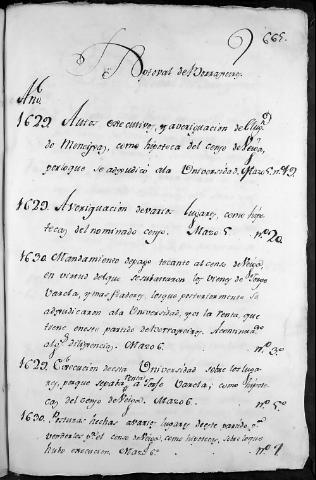 665.
Notoval de Berrapeiros
Año
1629. Autos executivos, y averiguación de
de Moneijva, como hipoteca del censo de Neyra,
por lo que se adjudicó ala Universidad. Mazo 5. nº 19.
1629. Averiguación de varios lugares, como hipo
tecas, del nominado censo. Mazo 5. nº 20.
1630. Mandamiento de pago tocante al censo de Neyra,
en virtud del que se subastaron los vienes de
Varela, y mas fiadores, los que posteriormente se
adjudicaron ala Universidad, y a la Renta, que
tiene en este partido de Berrapeiros.
diligencias. Mazo 6. nº 3º
1629. Execucion de esta Universidad sobre los luga
res, Varela; como hipote
cas, del censo de Neyra. Mazo 6. nº 5º
1630. Posturas hechas a varios lugares de este partido, pª
venderlos pr el censo de Neyra; como hipotecas, sobre lo que
hubo execucion. Mazo 6º nº 4